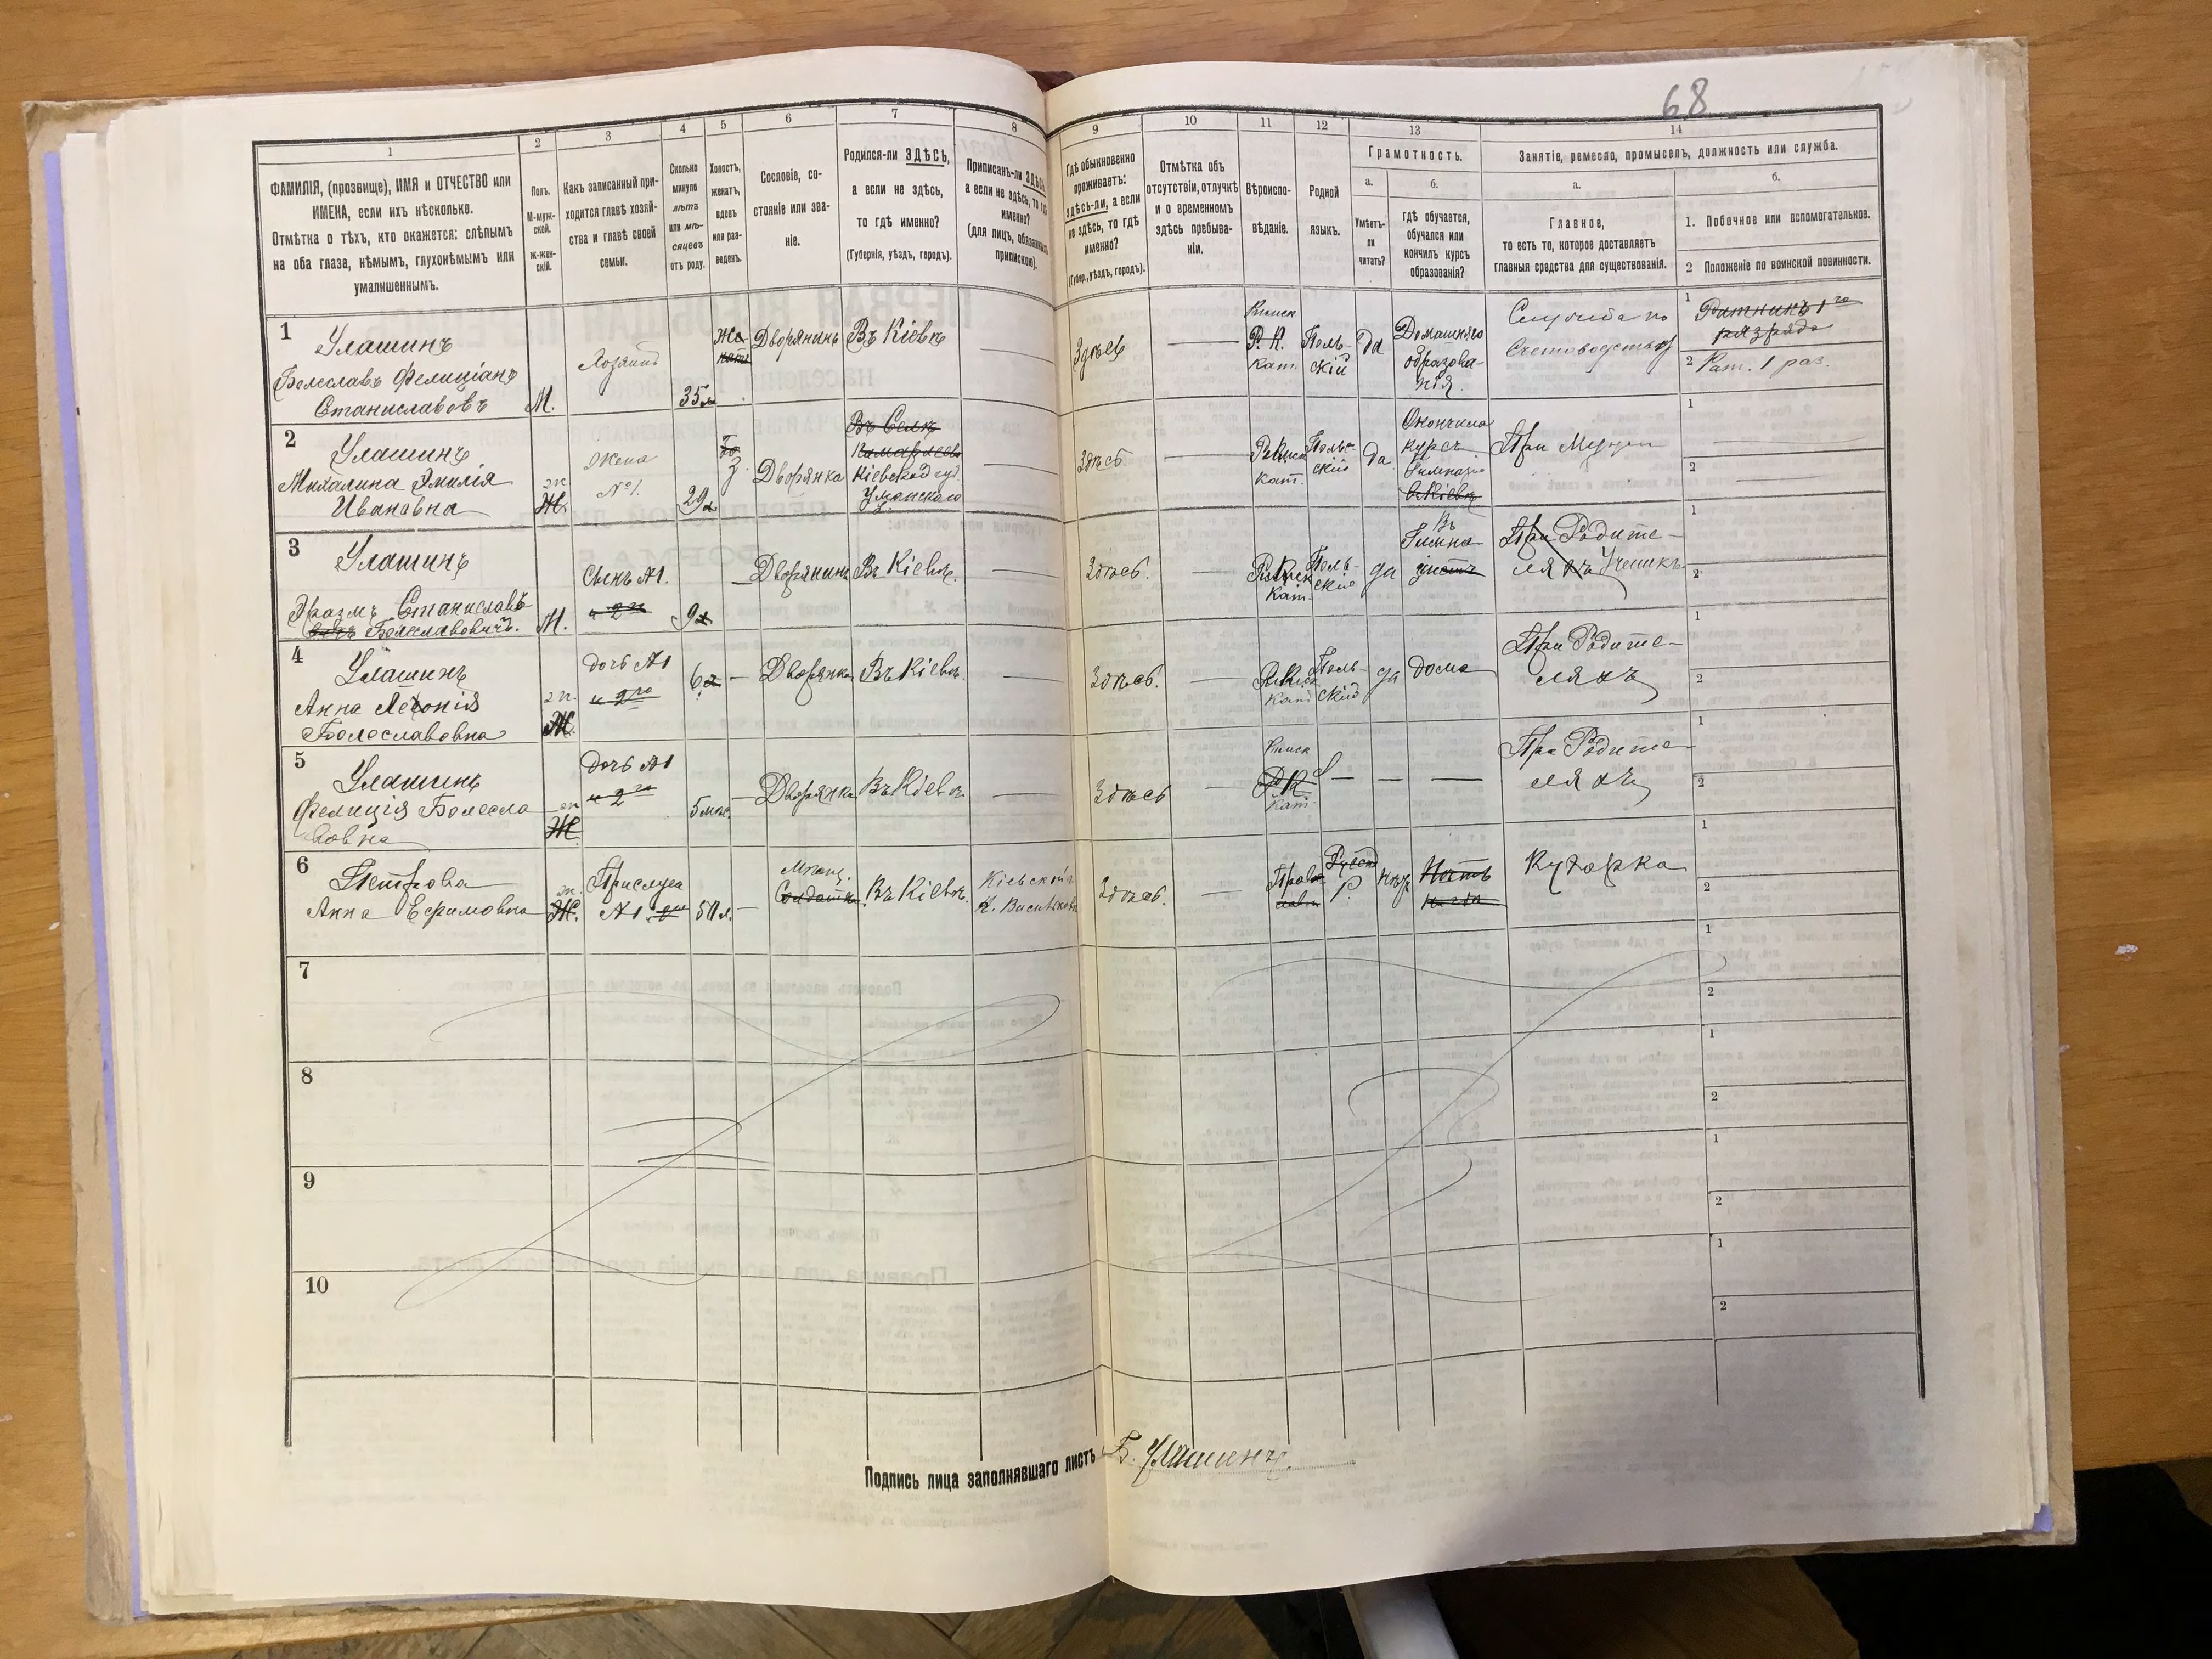 68
1
2
3
4
5
6
7
8
9
10
11
12
13
14
ФАМИЛІЯ, (прозвище), ИМЯ и ОТЧЕСТВО или
ИМЕНА, если ихъ нѣсколько.
Отмѣтка о тѣхъ, кто окажется: слѣпымъ
на оба глаза, нѣмымъ, глухонѣмымъ или
умалишеннымъ.
Полъ.
М-муж-
ской.
Ж-жен-
скій.
Какъ записанный при-
ходится главѣ хозяй-
ства и главѣ своей
семьи.
Сколько
минуло
лѣтъ
или мѣ-
сяцевъ
отъ роду.
Холостъ,
женатъ,
вдовъ
или раз-
веденъ.
Сословіе, со-
стояніе или зва-
ніе.
Родился-ли ЗДѢСЬ,
а если не здѣсь,
то гдѣ именно?
(Губернія, уѣздъ, городъ).
Приписанъ-ли ЗДѢСЬ,
а если не здѣсь, то гдѣ
именно?
(для лицъ, обязанныхъ
припискою).
Гдѣ обыкновенно
проживаетъ:
здѣсь-ли, а если
не здѣсь, то гдѣ
именно?
(Губер., уѣздъ, городъ).
Отмѣтка объ
отсутствіи, отлучкѣ
и о временномъ
здѣсь пребыва-
ніи.
Вѣроиспо-
вѣданіе.
Родной
языкъ.
Грамотность.
а.
Умѣетъ-
ли
читать?
б.
гдѣ обучается,
обучался или
кончилъ курсъ
образованія?
Занятіе, ремесло, промыселъ, должность или служба.
а.
Главное,
то есть то, которое доставляетъ
главныя средства для существованія.
б.
1. Побочное или вспомогательное.
2 Положеніе по воинской повинности.
1
Улашинъ
Болеславъ Фелиціанъ
Станиславовъ
М.
Хозяинъ
35л
Же
натъ
Дворянинъ
Въ Кіевѣ
Здѣсь
Римск
Р. К.
Кат.
Поль-
скій
да
Домашняго
образова-
нія.
Служба по
Счетоводству
1
Ратникъ 1го
разряда
2 Рат. 1 раз.
2
Улашинъ
Михалина Эмилія
Ивановна
Ж.
Жена
№1.
29л
З.
Дворянка
Въ Селѣ
Кіевской гу.
Уманскаго
у.
Здѣсь
Кат.
Поль-
скій
да
Окончила
курсъ
Гимназіи
въ Кіевѣ
При Мужѣ
1
2
3
Улашинъ
Эразмъ Станиславъ
Болеславовичъ.
М.
Сынъ №1.
и 2го
9л
Дворянинъ
Въ Кіевѣ.
Здѣсь.
Кат.
Поль-
скій
да
Въ
Гимна-
зистъ
При Родите-
ляхъ Ученикъ
1
2
4
Улашинъ
Анна Леонія
Болеславовна
Ж.
дочь №1
и 2го
6л
Дворянка
Въ Кіевѣ.
Здѣсь.
Кат
Поль-
скій
да
дома
При Родите-
ляхъ
1
2
5
Улашинъ
Фелиція Болесла
вовна
Ж
дочь №1
и 2го
5 мѣс.
Дворянка
Въ Кіевѣ
Здѣсь
Римск
Р.К
Кат.
При Родите-
ляхъ
1
2
6
Петрова
Анна Ефимовна
Ж.
Прислуга
№1
50л.
Мѣщ.
Солдатка
Въ Кіевѣ.
Кіевской г.
Здѣсь.
Право
славн
Р.
нѣтъ
Кухарка
1
2
7
1
2
8
1
2
9
1
2
10
1
2
Подпись лица заполнявшаго листъ Б. Улашинъ.